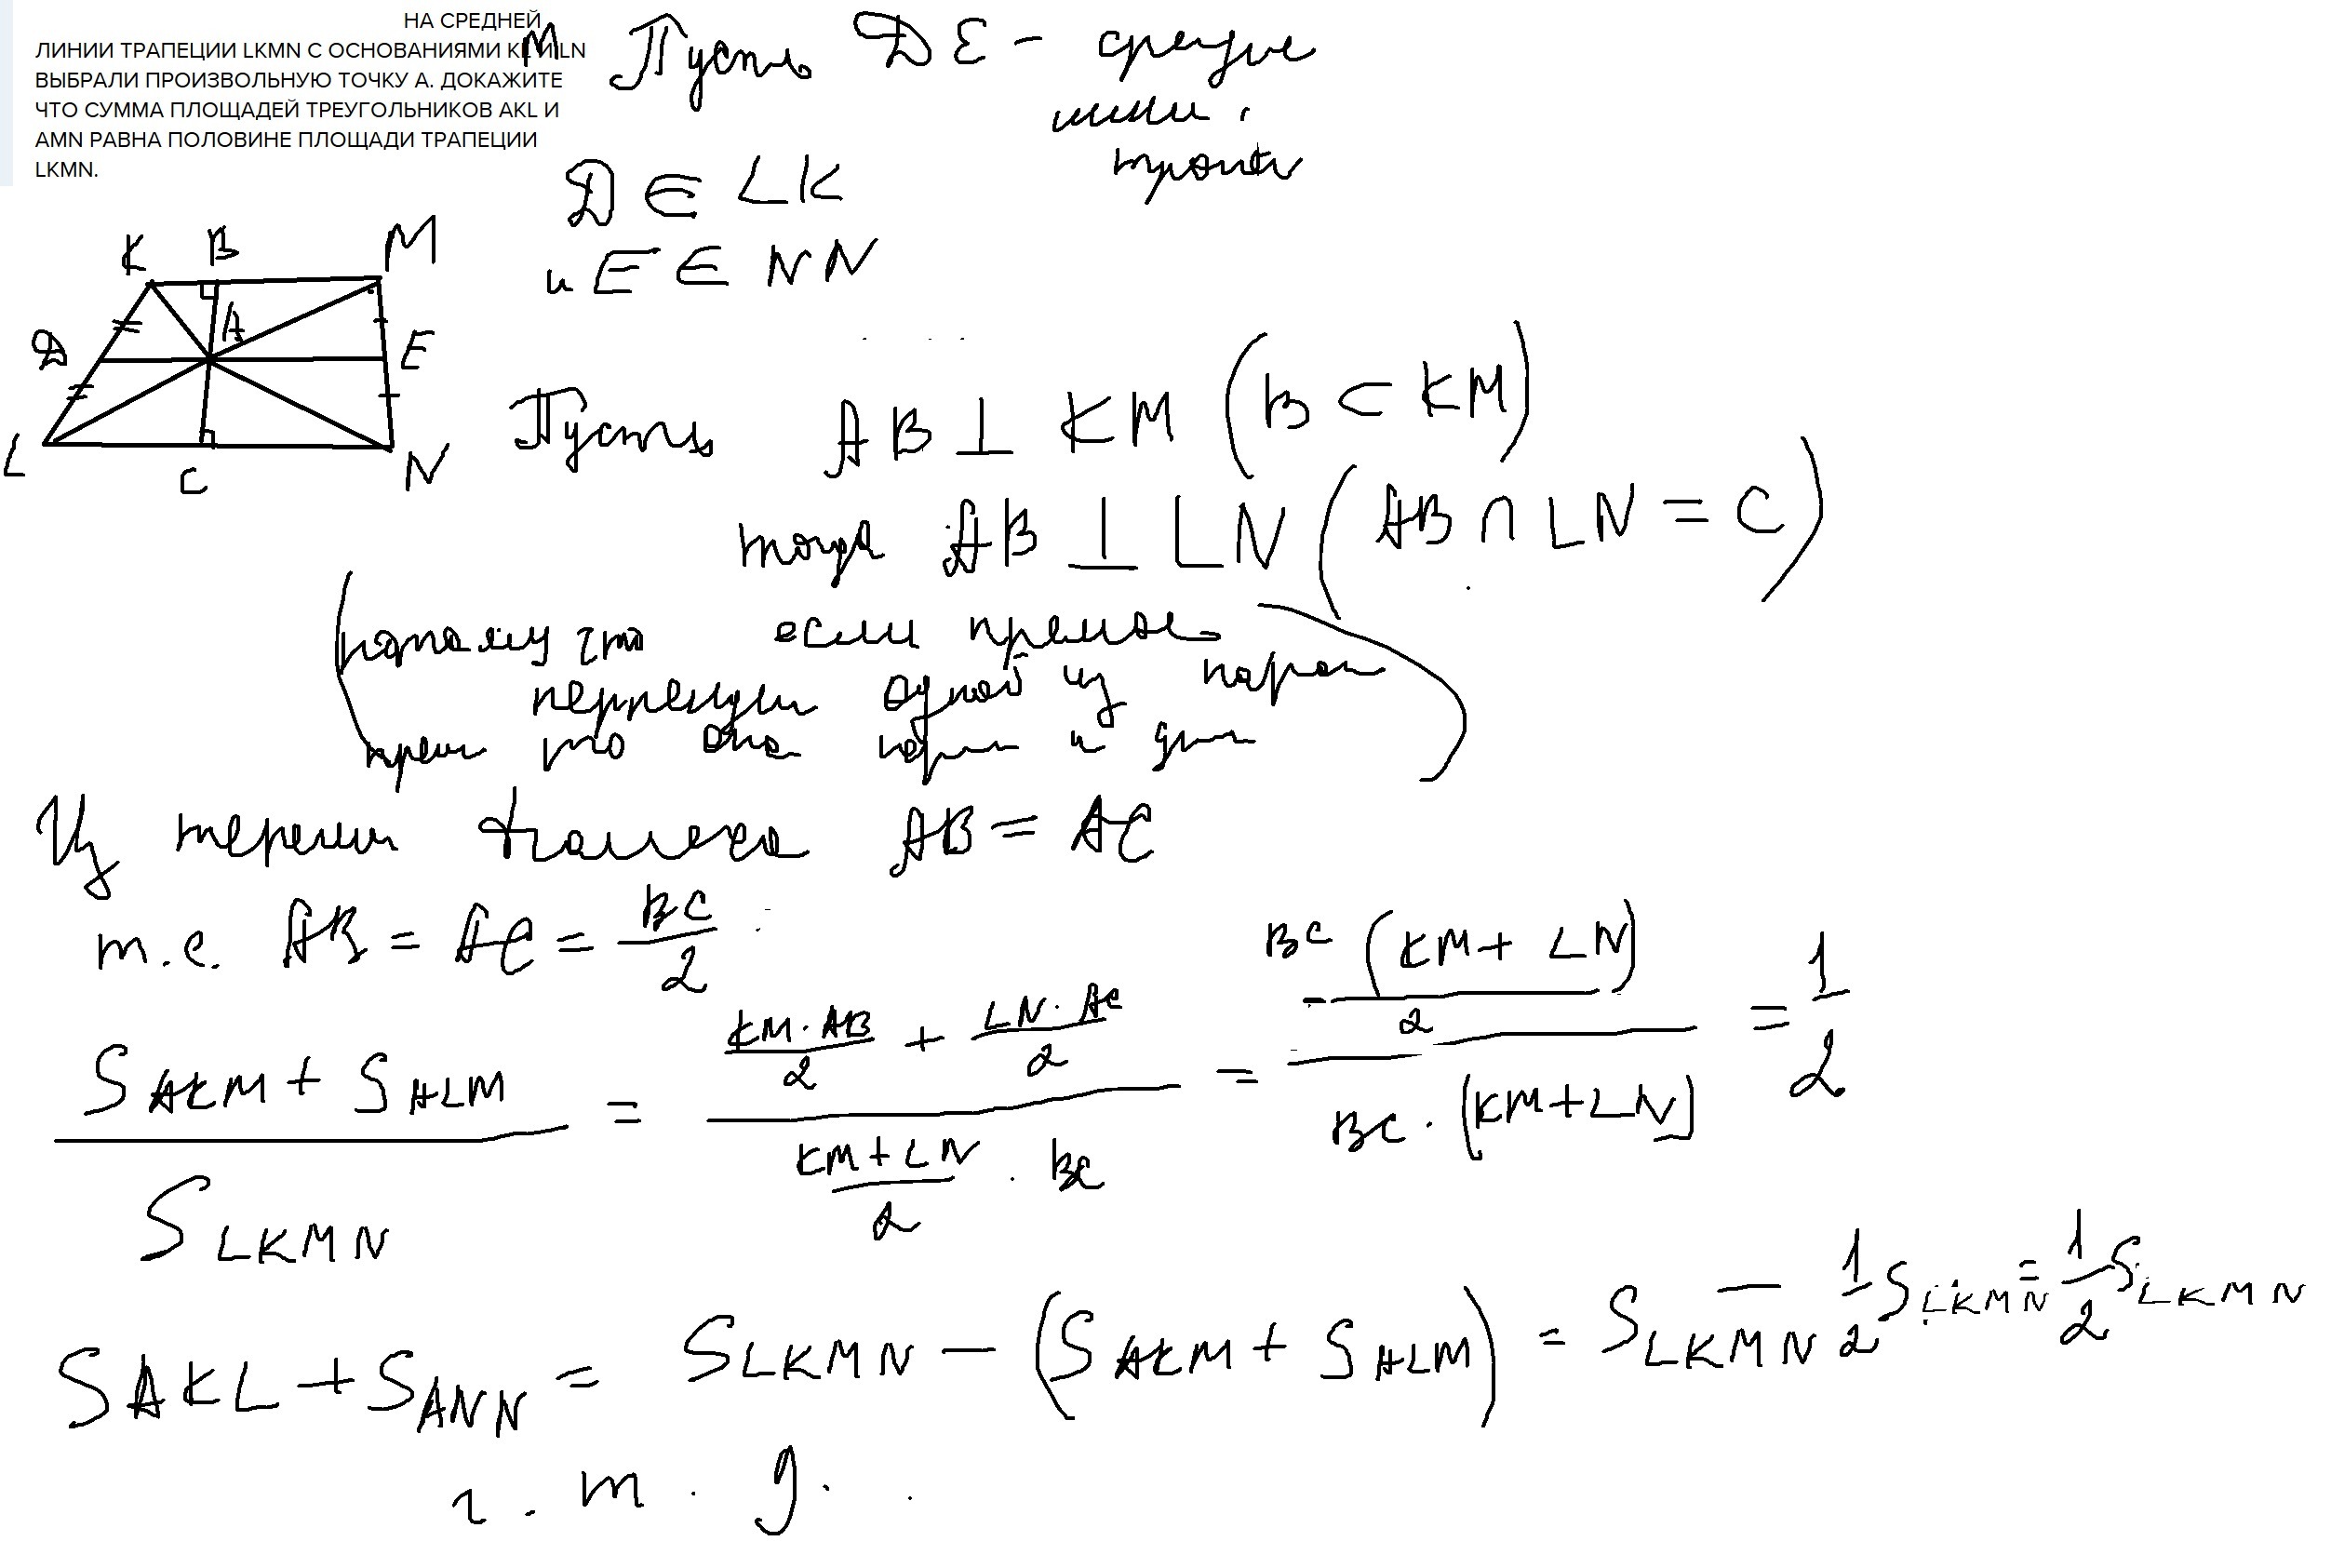 НА СРЕДНЕЙ
ЛИНИИ ТРАПЕЦИИ LKMN С ОСНОВАНИЯМИ KL И LN
ВЫБРАЛИ ПРОИЗВОЛЬНУЮ ТОЧКУ А. ДОКАЖИТЕ
ЧТО СУММА ПЛОЩАДЕЙ ТРЕУГОЛЬНИКОВ AKL И
AMN РАВНА ПОЛОВИНЕ ПЛОЩАДИ ТРАПЕЦИИ
LKMN.
M
Пусть DE - средние
линии
D ∈ LK
и E ∈ NN
K B M
D A E
L C N
Пусть AB ⊥ KM (B ⊂ KM)
тогда AB ⊥ LN (AB ∩ LN = C)
(потому что если
одной из парал
прям то она и
Из теорем Фалеса AB = AC
т.е. AB = AC = BC/2
(S AKM + S ALM)/S LKMN = (KM · AB/2 + LN · AC/2)/((KM + LN)/2 · BC) = (BC (KM + LN)/2)/(BC · (KM + LN)) = 1/2
S AKL + S ANN = S LKMN - (S AKM + S ALM) = S LKMN - 1/2 S LKMN = 1/2 S LKMN
ч. т. д.